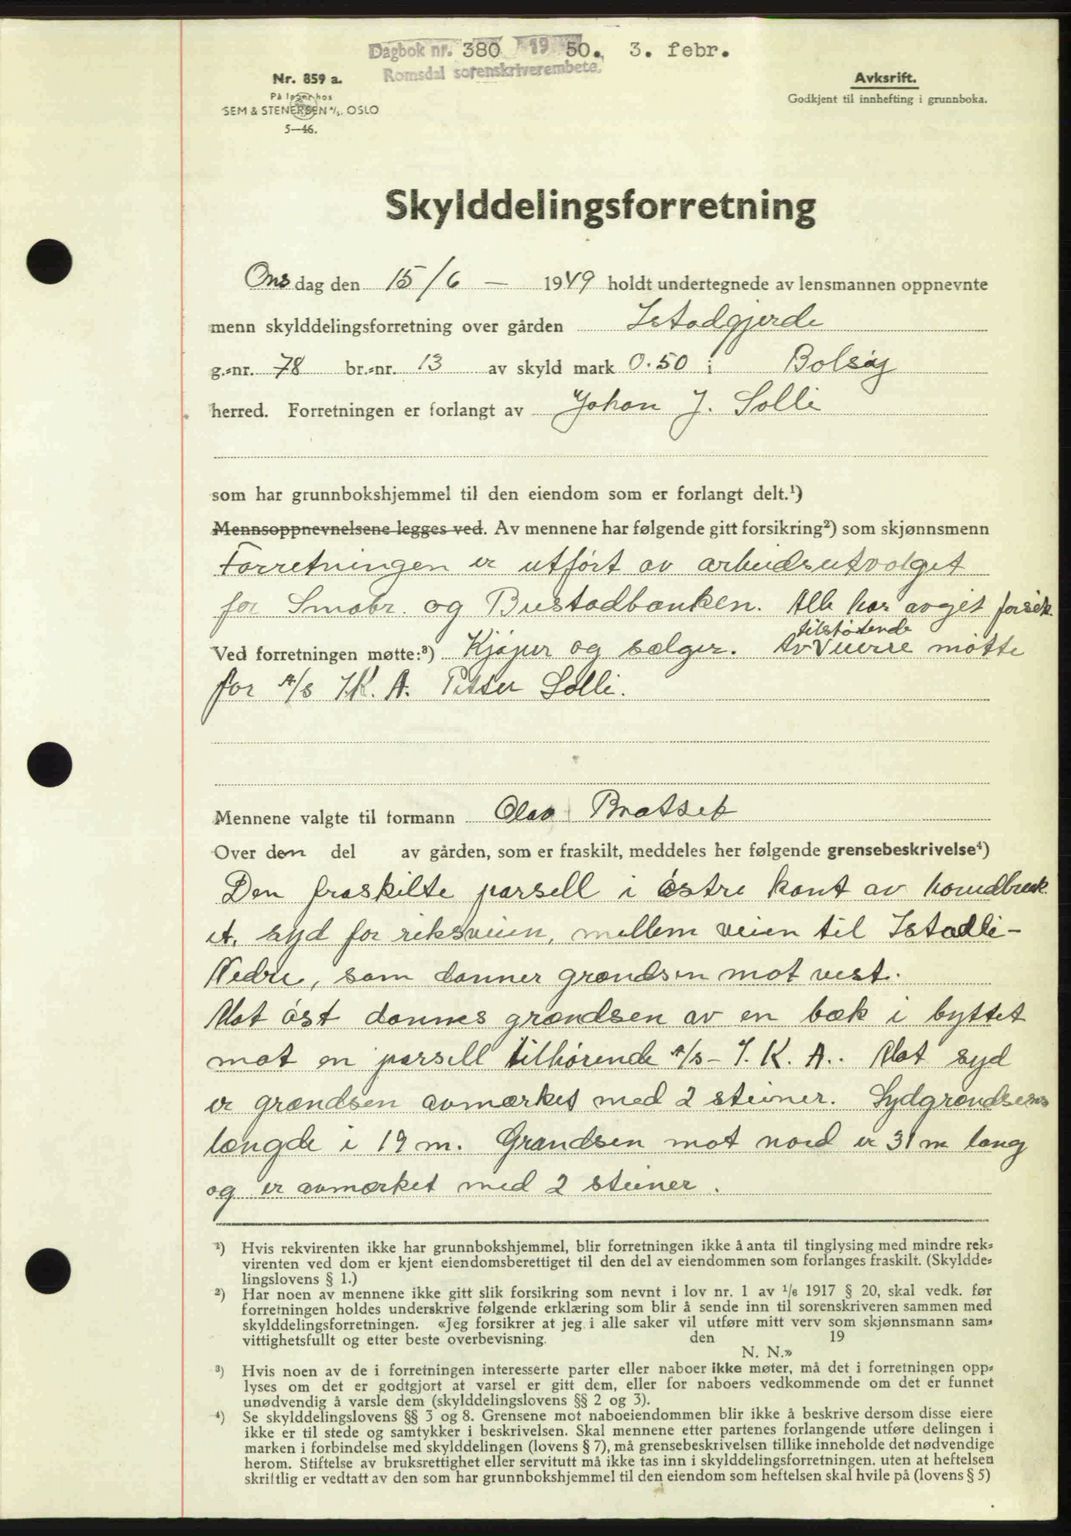 Dagbok nr. 380 1950. 3. febr.
Romsdal sorenskriverembete.
Nr. 859 a.
På lager hos
SEM & STENERSEN A/s. OSLO
5—46.
Avskrift.
Godkjent til innhefting i grunnboka.
Skylddelingsforretning
Onsdag den 15/6 — 1949 holdt undertegnede av lensmannen oppnevnte
menn skylddelingsforretning over gården Istadgjerde
g.-nr. 78 br.-nr. 13 av skyld mark 0.50 i Bolsøy
herred. Forretningen er forlangt av Johan J. Solli
som har grunnbokshjemmel til den eiendom som er forlangt delt.¹)
Mennsoppnevnelsene legges ved. Av mennene har følgende gitt forsikring²) som skjønnsmenn
Forretningen er utført av arbeidsutvalget
for Småbr. og Bustadbanken. Alle har avgit forsik.
tilstøtende
Ved forretningen møtte:³) Kjøper og sælger. Av møtte
for A/s I.K.A. Petter Solli.
Mennene valgte til formann Olav Bratset
Over den del av gården, som er fraskilt, meddeles her følgende grensebeskrivelse⁴)
Den fraskilte parsell i østre kant av hovedbruk
et, syd for riksveien, mellem veien til Istadli-
Nedre, som danner grændsen mot vest.
Mot øst dannes grændsen av en bæk i byttet
mot en parsell tilhørende A/s - I.K.A.. Mot syd
er grændsen avmærket med 2 steiner. Sydgrændsens
længde i 19 m. Grændsen mot nord er 31 m lang
og er avmærket med 2 steiner.
¹) Hvis rekvirenten ikke har grunnbokshjemmel, blir forretningen ikke å anta til tinglysing med mindre rek-
virenten ved dom er kjent eiendomsberettiget til den del av eiendommen som forlanges fraskilt. (Skyldde-
lingslovens § 1.)
²) Har noen av mennene ikke gitt slik forsikring som nevnt i lov nr. 1 av 1/6 1917 § 20, skal vedk. før
forretningen holdes underskrive følgende erklæring som blir å sende inn til sorenskriveren sammen med
skylddelingsforretningen. «Jeg forsikrer at jeg i alle saker vil utføre mitt verv som skjønnsmann sam-
vittighetsfullt og etter beste overbevisning. den 19
N. N.»
³) Hvis noen av de i forretningen interesserte parter eller naboer ikke møter, må det i forretningen opp-
lyses om det er godtgjort at varsel er gitt dem, eller for naboers vedkommende om det er funnet
unødvendig å varsle dem (skylddelingslovens §§ 2 og 3).
⁴) Se skylddelingslovens §§ 3 og 8. Grensene mot naboeiendommen blir ikke å beskrive dersom disse eiere
ikke er til stede og samtykker i beskrivelsen. Skal mennene etter partenes forlangende utføre delingen i
marken i forbindelse med skylddelingen (lovens § 7), må grensebeskrivelsen tillike inneholde det nødvendige
herom. Stiftelse av bruksrettighet eller servitutt må ikke tas inn i skylddelingsforretningen, uten at heftelsen
skriftlig er vedtatt av den som har grunnbokshjemmel til den eiendom som heftelsen skal hvile på (lovens § 5)